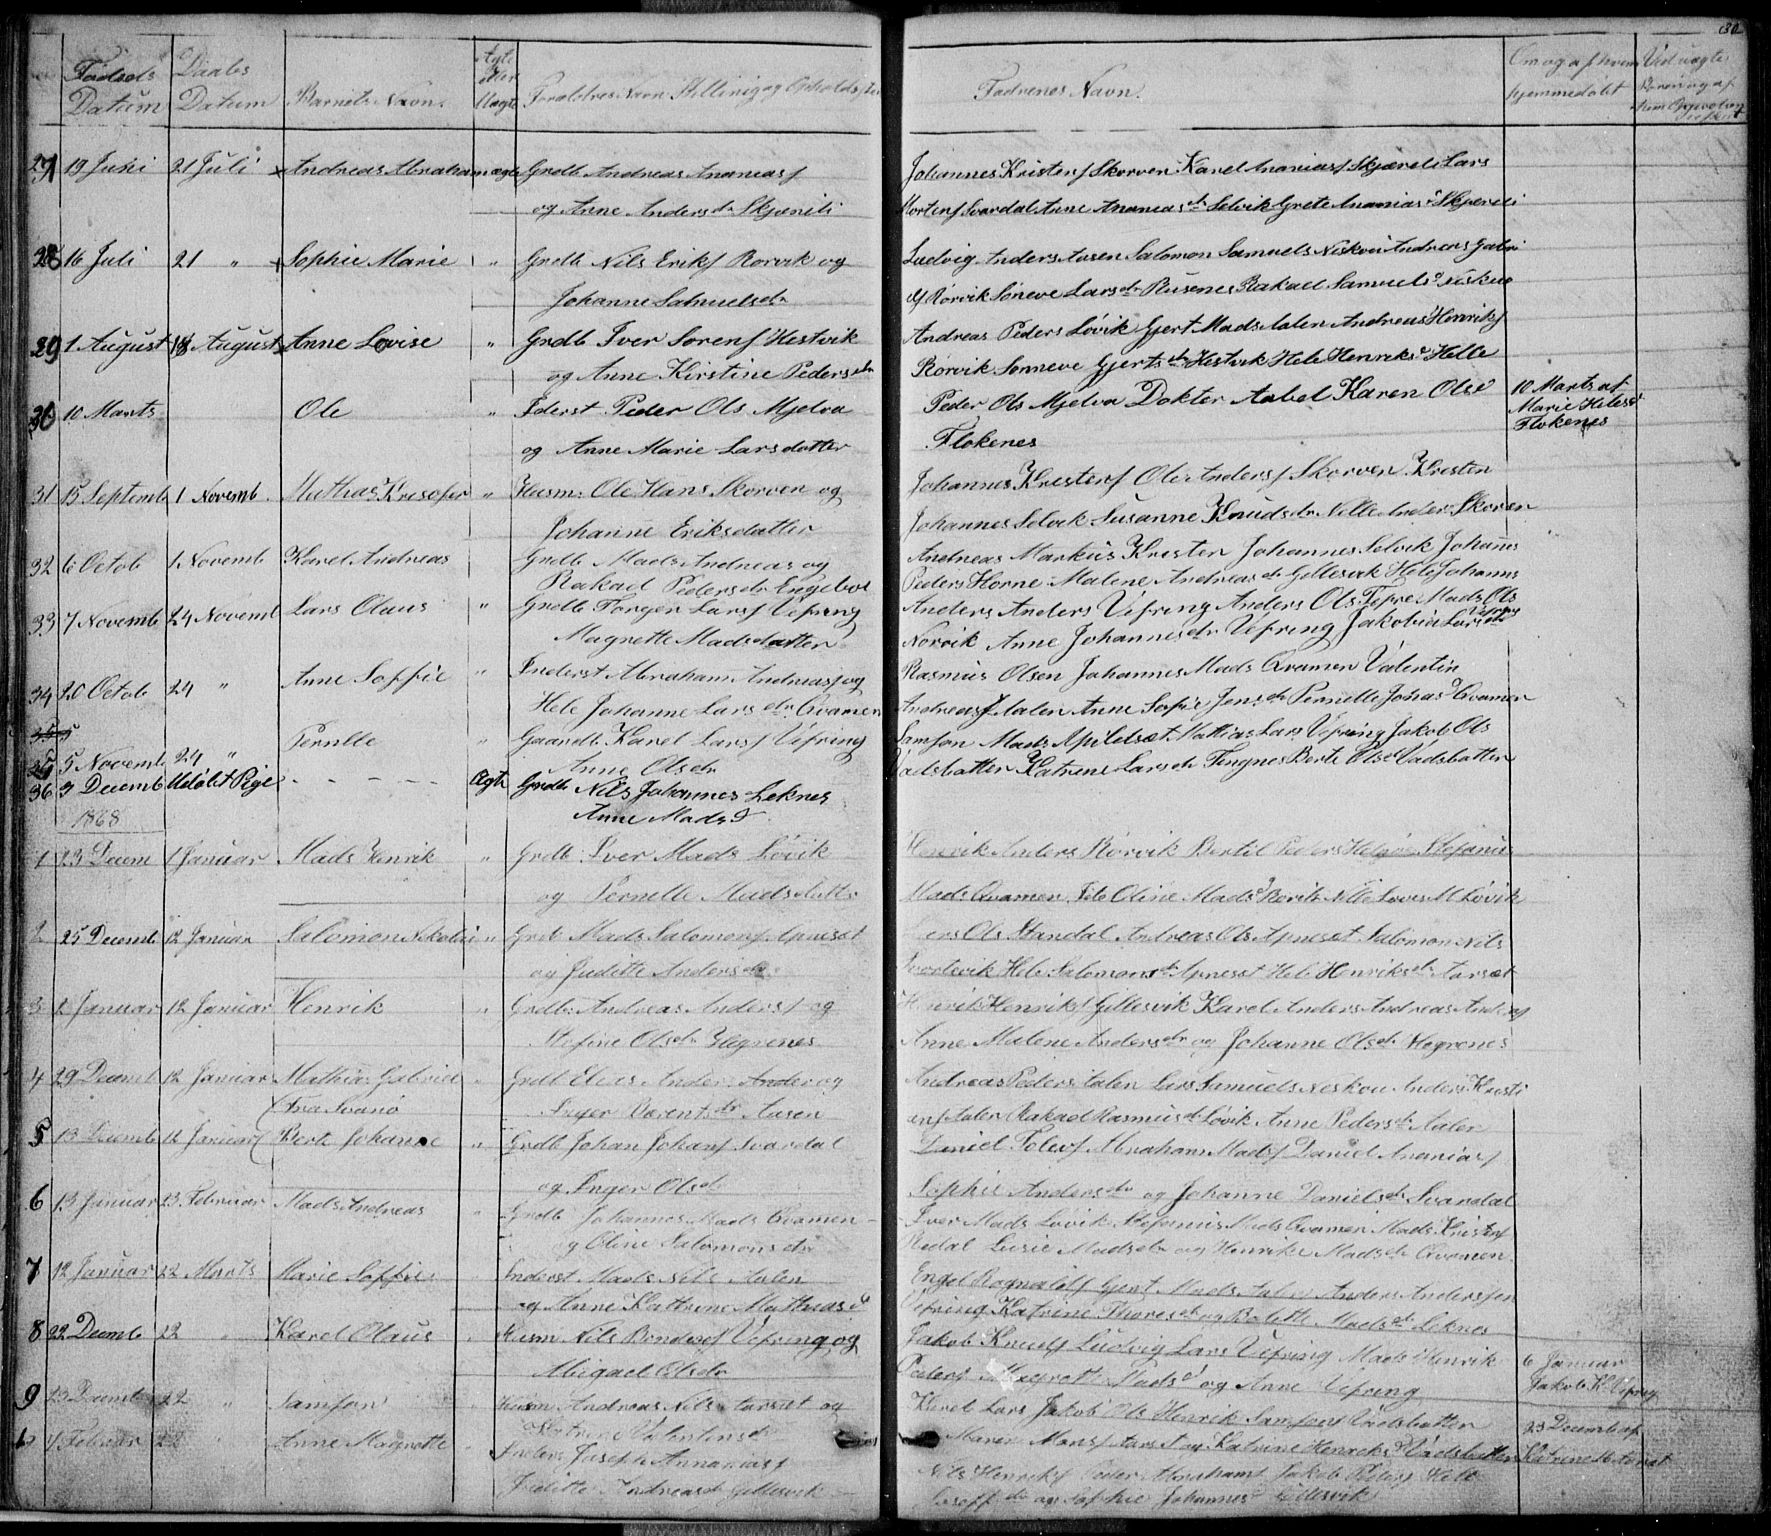 30
Fødsels Datum
Daabs Datum
Barnets Navn.
Ægte eller Uægte
Forældres Navn Stilling og Opholds
Fadrenes Navn.
Om og af hvem hjemmedøbt
Ved uægte
27 19 Juni 21 Juli Andreas Abraham ægte Grdb Andreas Ananiasf
og Anne Andersdr Skjæreli
Johannes Kristenf Skorven Karel Ananiasf Skjæreli Lars
Mortenf Svardal Anne Ananiasdr Selvik Grete Ananias Skjæreli
28 16 Juli 21 " Sophie Marie " Grdb Nils Erikf Rørvik og
Johanne Samuelsdr
Ludvig Anders Aasen Salomon Samuels Neskou Andreas Gabri
elf Rørvik Søneve Larsdr Rusenes Rakael Samuelsd Neskou
29 1 August 18 August Anne Lovise " Grdb Iver Sørenf Hestvik
og Anne Kirstine Pedersdr
Andreas Peders Løvik Gjert Mads Aalen Andreas Henrikf
Rørvik Sønneve Gjertsdr Hestvik Hele Henriksd Helle
30 10 Marts Ole " Inderst Peder Ols Mjelva
og Anne Marie Larsdatter
Peder Ols Mjelva Dokter Aabel Karen Olsd
Flokenes
10 Marts af
Marie Helesd
Flokenes
31 15 Septemb 1 Novemb. Mathias Kristofer " Husm: Ole Hans Skorven og
Johanne Eriksdatter
Johannes Kristenf Ole Andersf Skorven Kristen
Johannes Selvik Susanne Knudsdr Nille Anders Skorven
32 6 Octob 1 Novemb Karel Andreas Grdb Mads Andreas og
Rakael Pedersdr Engebøe
Andreas Markus Kristen Johannes Selvik Johanes
Peders Horne Malene Andreasdr Gillesvik Hele Johanns
33 7 Novemb 24 Novemb Lars Olaus " Grdb Torger Larsf Vefring
Magnette Madsdatter
Anders Anders Vefring Anders Ols Tefre Mads Ols
Norvik Anne Johannesdr Vefring Jakobia Larsdr Vefring
34 20 Octob 24 " Anne Soffie " Inderst Abraham Andreasf og
Hele Johanne Larsdr Qvamen
Rasmus Olsen Johannes Mads Qvamen Valentin
Andreasf Aalen Anne Sofie Jensdr Pernille Jonasd Qvamen
35 5 Novemb 24 " Pernlle " Gaardb Karel Larsf Vefring
Anne Olsdr
Samson Mads Apilelsæt Mathias Lars Vefring Jakob Ols
Vadsbotten Katrine Larsdr Tingnes Berte Olsd Vadsbotten
36 3 Decemb Udøbt Pige - - - - - Ægte Grdb Nils Johannes Leknes
Anne Madsd
1868
1 23 Decem 1 Januar Mads Henrik " Grdb Iver Mads Løvik
og Pernelle Madsdatter
Henrik Anders Rørvik Bertil Peders Helgøe Stefanus
Mads Qvamen Hele Oline Madsd Rørvik Nille Lovise M Løvik
2 25 Decemb 12 Januar Salomon Nikolai " Grdb Mads Salomonf Apneset
og Juditte Andersdr
Ols Standal Andreas Ols Apneset Salomon Nils
Svortevik Hele Salomonsdr Apneset Hele Henriksdr Aarsæt
3 2 Januar 12 Januar Henrik " Grdb: Andreas Andersf og
Stefine Olsdr Hegrenes
Henrik Henrikf Gillesvik Karel Anders Andreas Andersf
Anne Malene Andersdr og Johanne Olsdr Hegrenes
4 29 Decemb 12 Januar Mathias Gabriel " Grdb Elias Anders og
Inger Berentsdr Aasen
Andreas Peders Aalen Lars Samuels Neskou Anders Kristi
anf Aalen Rakael Rasmusdr Løvik Anne Pedersdr Aalen
5 13 Decemb 12 Januar (Fra Svanø Berte Johanne " Grdb Johan Johanf Svardal
og Inger Olsdr
Daniel Tolevf Abraham Madsf Daniel Ananiasf
Sophie Andersdr og Johanne Danielsdr Svardal
6 13 Januar 23 Februar Mads Andreas " Grdb Johannes Mads Qvamen
og Oline Salomonsdr
Iver Mads Løvik Stefanus Mads Qvamen Mads Kristenf
Redal Lusie Madsdr og Henrike Madsdr Qvamen
7 12 Januar 22 Marts Marie Soffie " Inderst Mads Nils Aalen
og Anne Kathrine Mathiasd
Engel Rognaldf Gjert Mads Aalen Anders Andersen
Vefring Katrine Thoresdr og Bolette Madsdr Leknes
8 22 Decemb 22 " Karel Olaus " Husm Nils Bendixf Vefring og
Abigael Olsdr
Jakob Knudf Ludvig Lars Vefring Mads Henrik
Pedersf Magrette Madsd og Anne Vefring
6 Januar
Jakob K Vefring
9 23 Decemb 22 " Samson " Husm Andreas Nils Aarsæt og
Katrine Valentinsdr
Karel Lars Jakob Ols Henrik Samsons Vadsbotten
Maren Monsf Aarsæt og Katrine Henriksd Vadsbotten
23 Decemb af
Katrine M Aarset
10 7 Februar 22 " Anne Magnette " Inders Joseph Annaniasf
Juditte Andreasdr Gillesvik
Nils Henrikf Peder Abrahams Jakob Pedersf Hele
Joseffdr og Sophie Johannesd Gillesvik